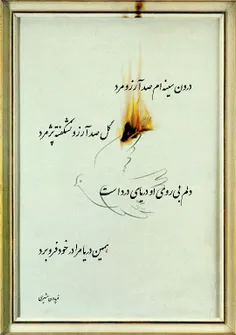 درون سینه‌ام صد آرزو مرد
گل صد آرزو نشکفته پژمرد
دلم بی روی او دریای درد است
همین دریا مرا در خود فرو برد
فریدون مشیری